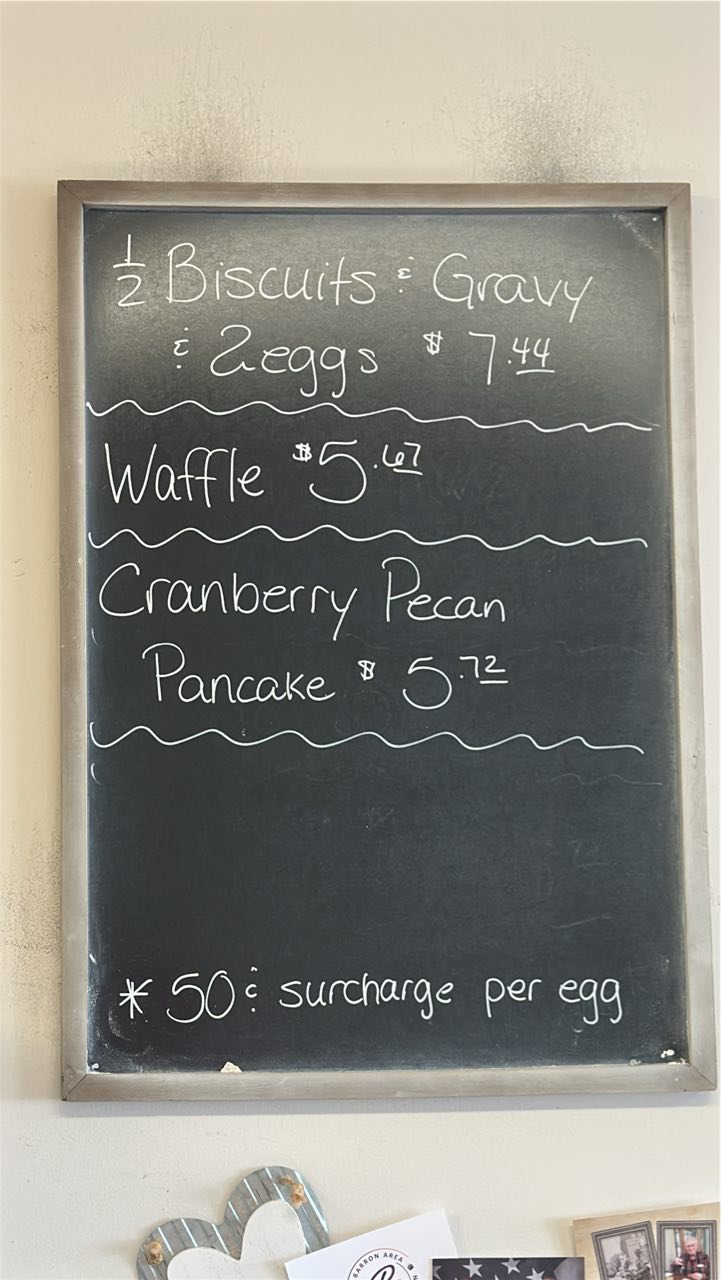 1/2 Biscuits & Gravy
& 2 eggs $7.44
Waffle $5.67
Cranberry Pecan
Pancake $5.72
* 50¢ surcharge per egg
BARRON AREA